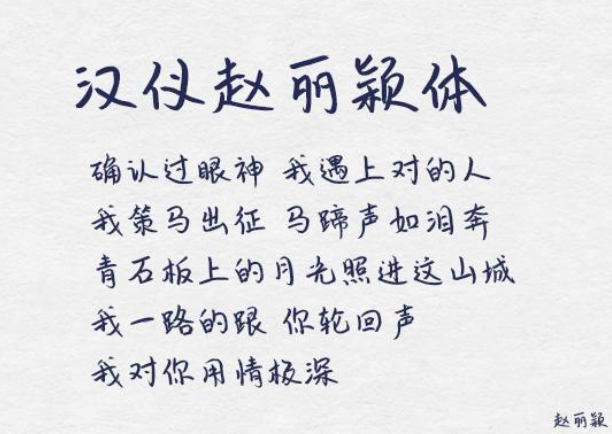 汉仪赵丽颖体
确认过眼神 我遇上对的人
我策马出征 马蹄声如泪奔
青石板上的月光照进这山城
我一路的跟 你轮回声
我对你用情极深
赵丽颖